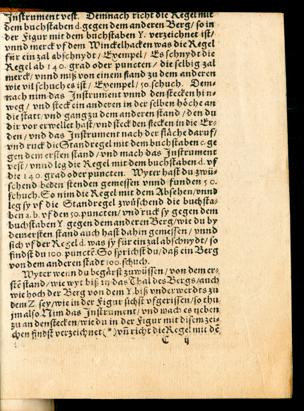 Instrument vest. Demnach richt die Regel mit
dem buchstaben d. gegen dem anderen Berg/ so in
der Figur mit dem buchstaben Y. verzeichnet ist/
vnnd merck vf dem Winckelhacken was die Regel
für ein zal abschnydt/ Exempel/ Es schnydt die
Regel ab 140. grad oder puncten/ die selbig zal
merck/ vnnd miß von einem stand zu dem anderen
wie vil schuch es ist/ Exempel/ 50. schuch. Dem-
nach nim das Instrument vnnd den stecken hin-
weg/ vnd steck ein anderen in der selben höche an
die statt/ vnd gang zu dem anderen stand/ den du
dir vor erwellet hast/ vnd steck den stecken in die Er-
den/ vnd das Instrument nach der fläche daruf/
vnd ruck die Standregel mit dem buchstaben c. ge
gen dem ersten stand/ vnd mach das Instrument
vest/ vnnd leg die Regel mit dem buchstaben d. vf
die 140. grad oder puncten. Wyter hast du zwü-
schend beden stenden gemessen vnnd funden 50.
schuch. So nim die Regel mit dem Absehen/ vnnd
leg sy vf die Standregel zwüschend die buchsta-
ben a. b. vf den 50. puncten/ vnd ruck sy gegen dem
buchstaben Y. gegen dem anderen Berg/ wie du by
dem ersten stand auch hast dahin gemessen/ vnnd
sich vf der Regel d. was sy für ein zal abschnydt/ so
findst du 100. punctē. So sprichst du/ daß ein Berg
von dem anderen stadt 100. schuch.
Wyter wenn du begärst zuwüssen/ von dem er-
stē stand/ wie wyt biß in das Thal des Bergs/ auch
wie hoch der Berg von dem Y. biß vnderwerdts zu
dem Z. sey/ wie in der Figur sichst vfgerissen/ so thu
jm also. Nim das Instrument/ vnd wach es neben
zu an den stecken/ wie du in der Figur mit disem zei-
chen findst verzeichnet (*) vñ richt die Regel mit dē
C ij